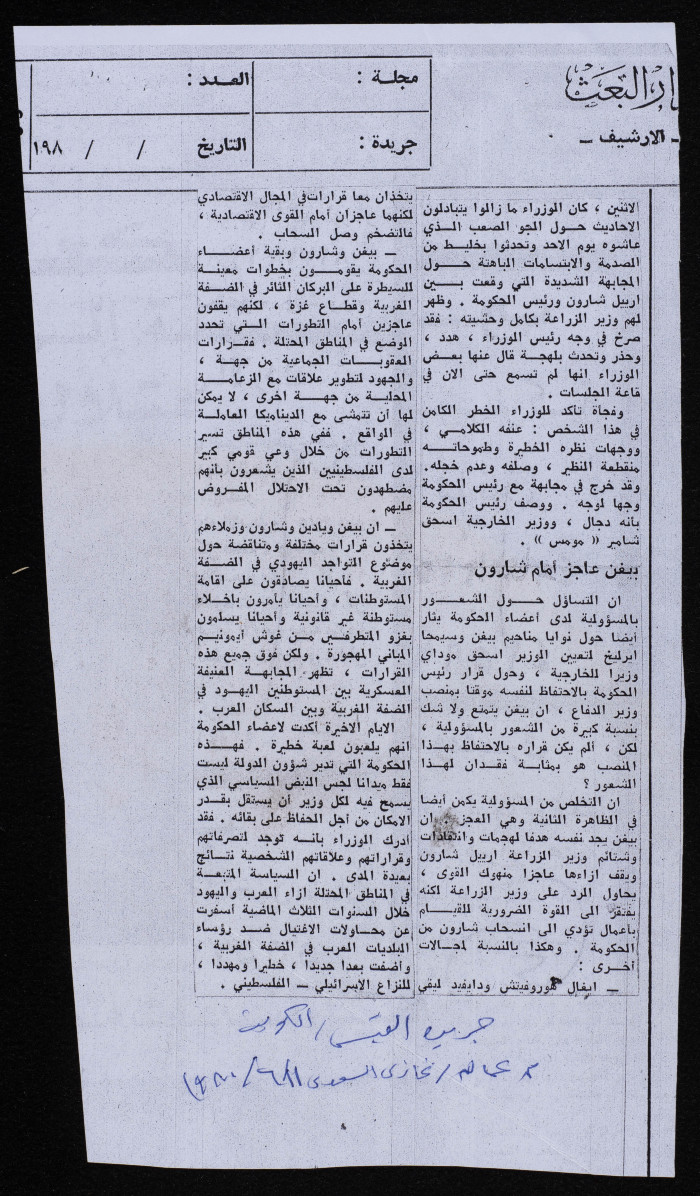 دار البعث
ـ الارشيف ـ
مجلة :
العدد :
جريدة :
التاريخ / / ١٩٨
الاثنين ، كان الوزراء ما زالوا يتبادلون
الاحاديث حول الجو الصعب الذي
عاشوه يوم الاحد وتحدثوا بخليط من
الصدمة والابتسامات الباهتة حول
المجابهة الشديدة التي وقعت بين
اربيل شارون ورئيس الحكومة . وظهر
لهم وزير الزراعة بكامل وحشيته : فقد
صرخ في وجه رئيس الوزراء ، هدد ،
وحذر وتحدث بلهجة قال عنها بعض
الوزراء انها لم تسمع حتى الان في
قاعة الجلسات .
وفجأة تأكد للوزراء الخطر الكامن
في هذا الشخص : عنفه الكلامي ،
ووجهات نظره الخطيرة وطموحاته
منقطعة النظير ، وصلفه وعدم خجله.
وقد خرج في مجابهة مع رئيس الحكومة
وجها لوجه . ووصف رئيس الحكومة
بأنه دجال ، ووزير الخارجية اسحق
شامير « مومس » .
بيغن عاجز أمام شارون
ان التساؤل حول الشعور
بالمسؤولية لدى أعضاء الحكومة يثار
أيضا حول نوايا مناحيم بيغن وسيمحا
ايرليخ لتعيين الوزير اسحق موداي
وزيرا للخارجية ، وحول قرار رئيس
الحكومة بالاحتفاظ لنفسه موقتا بمنصب
وزير الدفاع ، ان بيغن يتمتع ولا شك
بنسبة كبيرة من الشعور بالمسؤولية ،
لكن ، ألم يكن قراره بالاحتفاظ بهذا
المنصب هو بمثابة فقدان لهذا
الشعور ؟
ان التخلص من المسؤولية يكمن أيضا
في الظاهرة الثانية وهي العجز . ان
بيغن يجد نفسه هدفا لهجمات وانتقادات
وشتائم وزير الزراعة اربيل شارون
ويقف ازاءها عاجزا منهوك القوى ،
يحاول الرد على وزير الزراعة لكنه
يفتقر الى القوة الضرورية للقيام
بأعمال تؤدي الى انسحاب شارون من
الحكومة . وهكذا بالنسبة لمجالات
أخرى :
ـ ايغال هوروفيتش ودايفيد ليفي
يتخذان معا قرارات في المجال الاقتصادي
لكنهما عاجزان أمام القوى الاقتصادية ،
فالتضخم وصل السحاب .
ـ بيغن وشارون وبقية أعضاء
الحكومة يقومون بخطوات معينة
للسيطرة على البركان الثائر في الضفة
الغربية وقطاع غزة ، لكنهم يقفون
عاجزين أمام التطورات التي تحدد
الوضع في المناطق المحتلة . فقرارات
العقوبات الجماعية من جهة ،
والجهود لتطوير علاقات مع الزعامة
المحلية من جهة اخرى ، لا يمكن
لها أن تتمشى مع الديناميكا العاملة
في الواقع . ففي هذه المناطق تسير
التطورات من خلال وعي قومي كبير
لدى الفلسطينيين الذين يشعرون بأنهم
مضطهدون تحت الاحتلال المفروض
عليهم .
ـ ان بيغن ويادين وشارون وزملاءهم
يتخذون قرارات مختلفة ومتناقضة حول
موضوع التواجد اليهودي في الضفة
الغربية . فأحيانا يصادقون على اقامة
المستوطنات ، وأحيانا يأمرون باخلاء
مستوطنة غير قانونية وأحيانا يسلمون
بغزو المتطرفين من غوش أيمونيم
المباني المهجورة . ولكن فوق جميع هذه
القرارات ، تظهر المجابهة العنيفة
العسكرية بين المستوطنين اليهود في
الضفة الغربية وبين السكان العرب .
الايام الاخيرة أكدت لاعضاء الحكومة
انهم يلعبون لعبة خطيرة . فهذه
الحكومة التي تدير شؤون الدولة ليست
فقط ميدانا لحس النبض السياسي الذي
يسمح فيه لكل وزير أن يستقل بقدر
الامكان من أجل الحفاظ على بقائه . فقد
أدرك الوزراء بأنه توجد لتصرفاتهم
وقراراتهم وعلاقاتهم الشخصية نتائج
بعيدة المدى . ان السياسة المتبعة
في المناطق المحتلة ازاء العرب واليهود
خلال السنوات الثلاث الماضية أسفرت
عن محاولات الاغتيال ضد رؤساء
البلديات العرب في الضفة الغربية ،
وأضفت بعدا جديدا ، خطيرا ومهددا ،
للنزاع الاسرائيلي ـ الفلسطيني .
جريدة القبس / الكويت
غازي السعدي